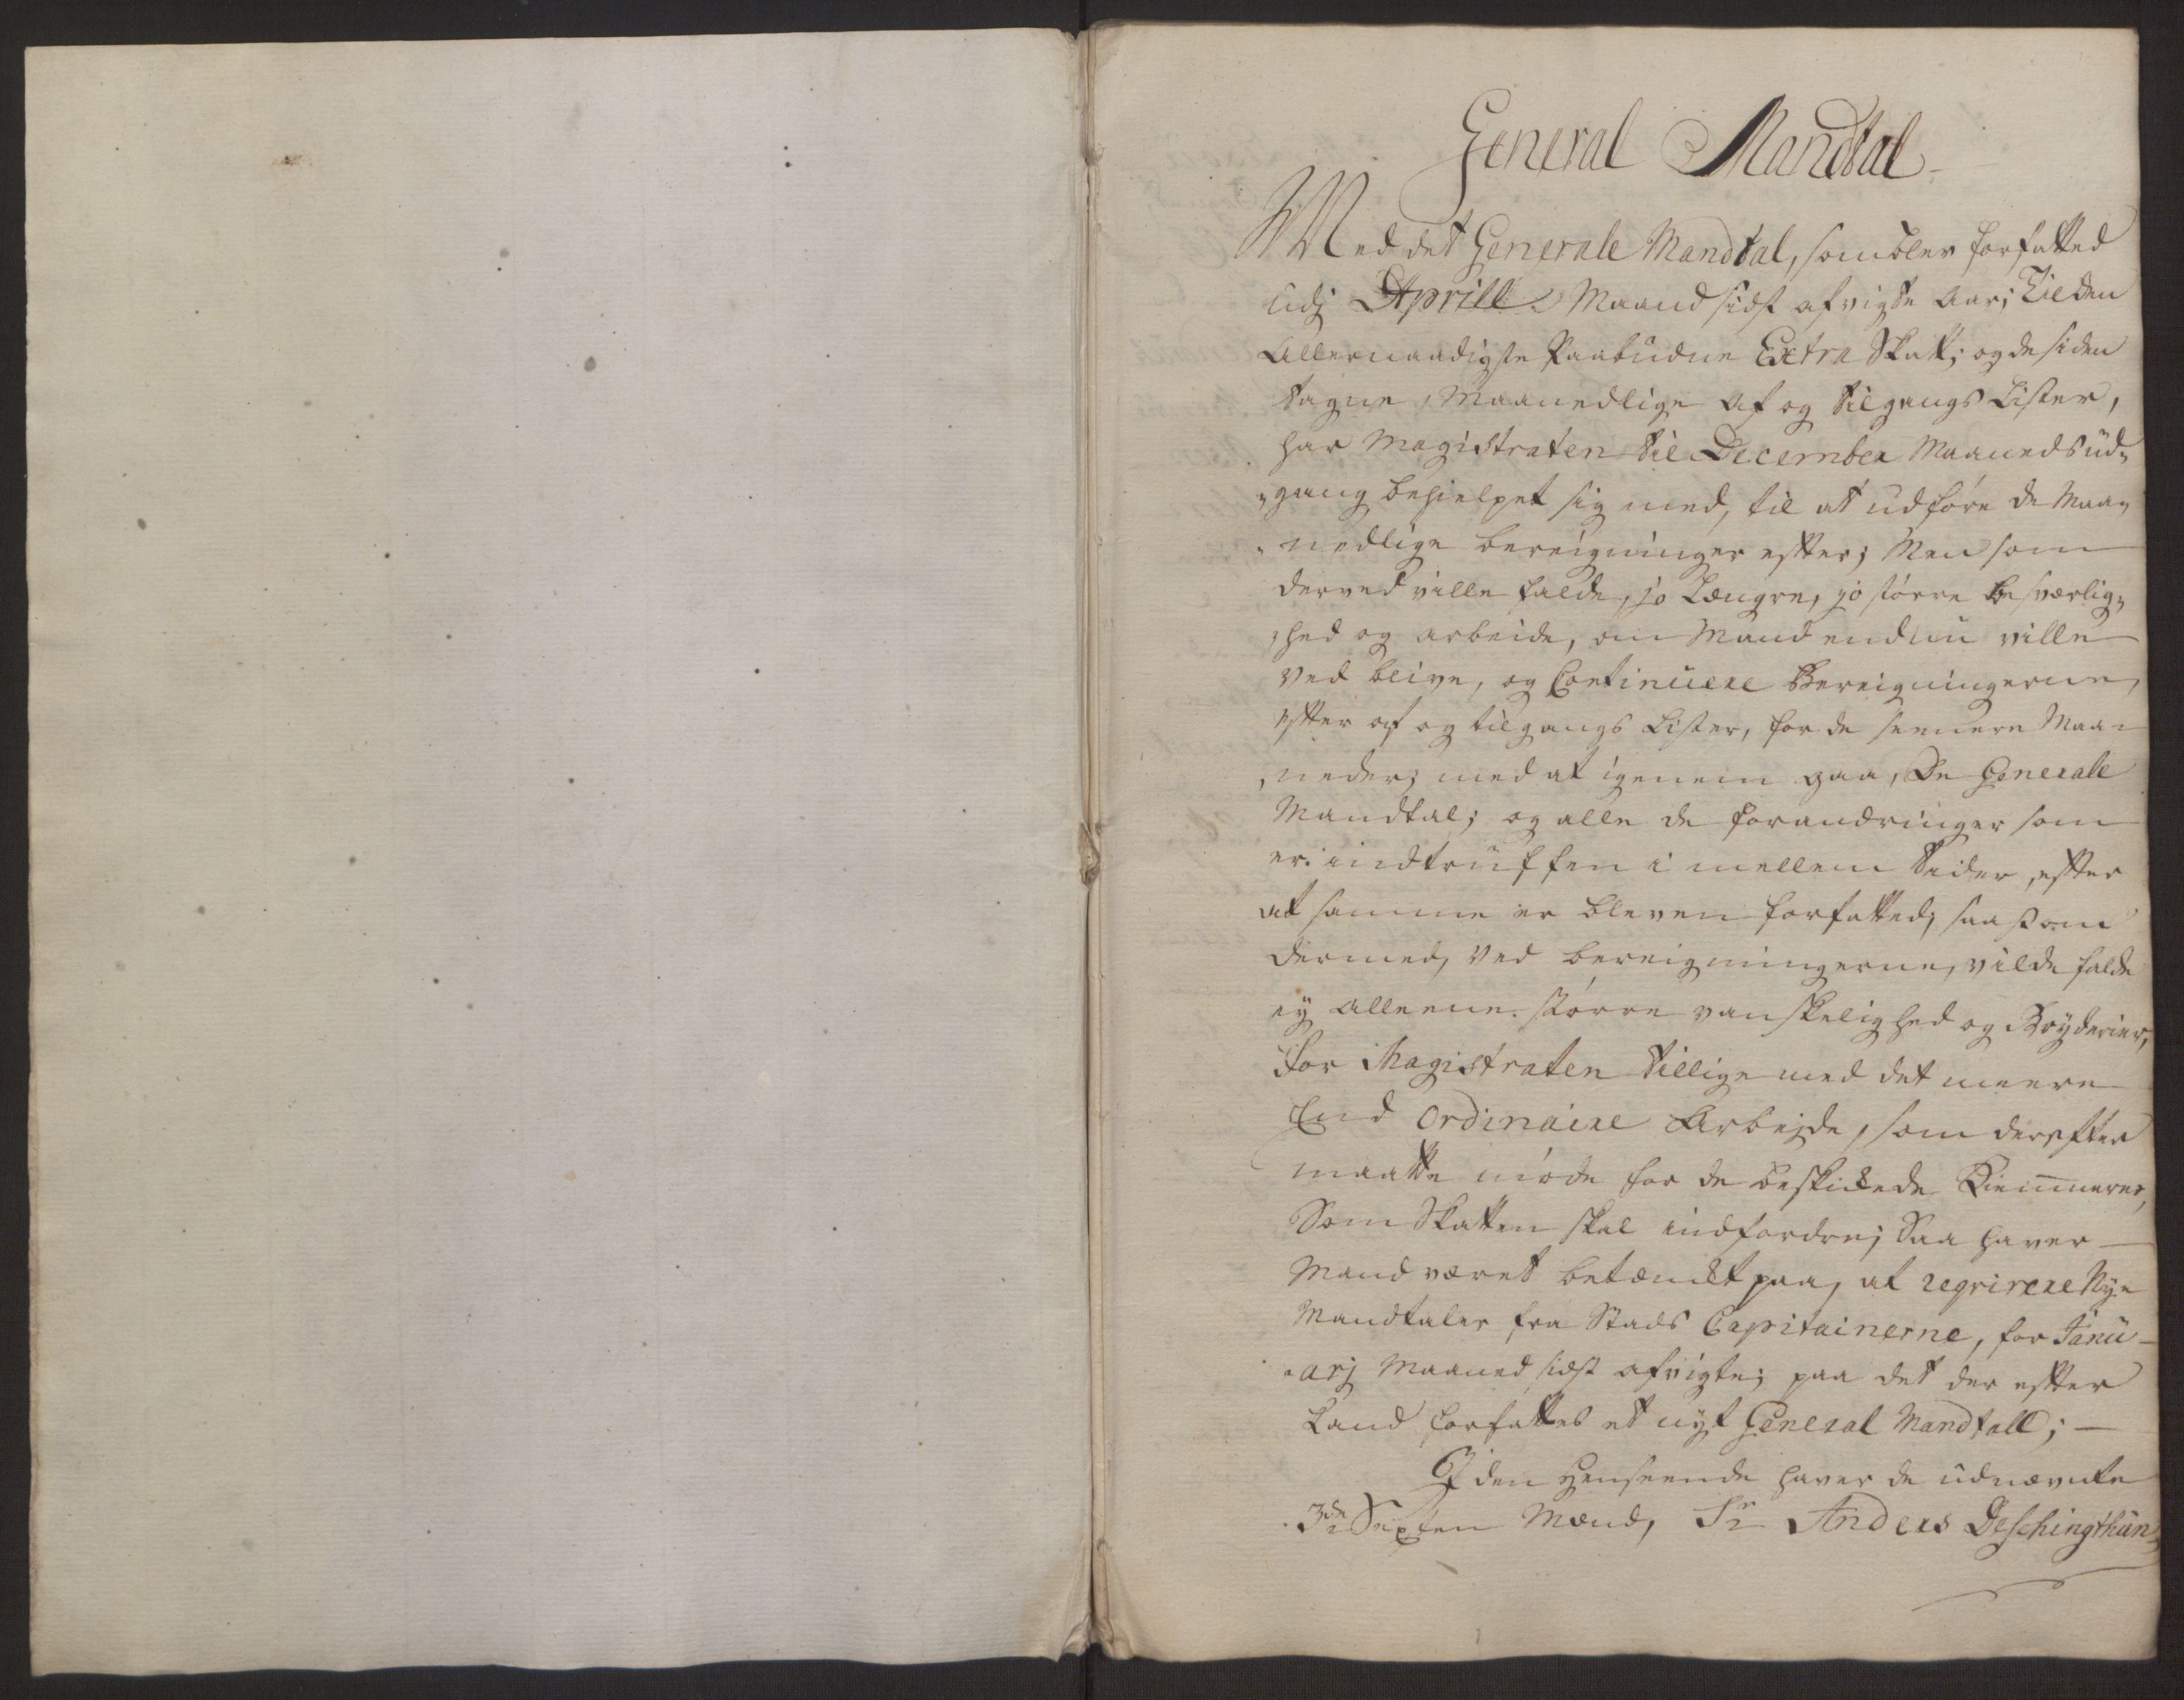 General Mandtal
Med det Generale Mandtal, som blev forfatted
udj Aprill Maand sidst afvigte Aar; Til den
Allernaadigste Paabudne Extra Skatt; og de siden
tagne Maanedlige Af og Tilgangs Lister,
har Magistraten til December Maaneds ud-
gang behielpet sig med, til at udføre de Maa-
nedlige bereigninger efter; Men som
derved ville falde, jo Længre, jo større besværlig-
hed og arbeide, om Mand endnu ville
ved blive, og Continuere Bereigningerne,
efter af og tilgangs Lister, for de seenere Maa-
neder; med at igenem gaa, De Generale
Mandtal; og alle de forandringer som
er indtruffen i mellem Tider, efter
at samme er bleven forfatted; saasom
dermed, ved bereigningerne, vilde falde
ey alleene større vanskelighed og Bryderier,
for Magistraten tillige med det meere
End Ordinaire Arbejde, som derefter
maatte møde for de beskikkede Kiemnerer,
Som Skatten skal indfordre; Saa haver
Mand været betænkt paa, at reqvirere Nye
Mandtaler fra Stads Capitainerne, for Janu-
arj Maaned sidst afvigte; paa det der efter
Kand forfattes et nyt General Mandtall;
I den Henseende haver de udnævnte
3de Sexten Mænd, Sr Anders